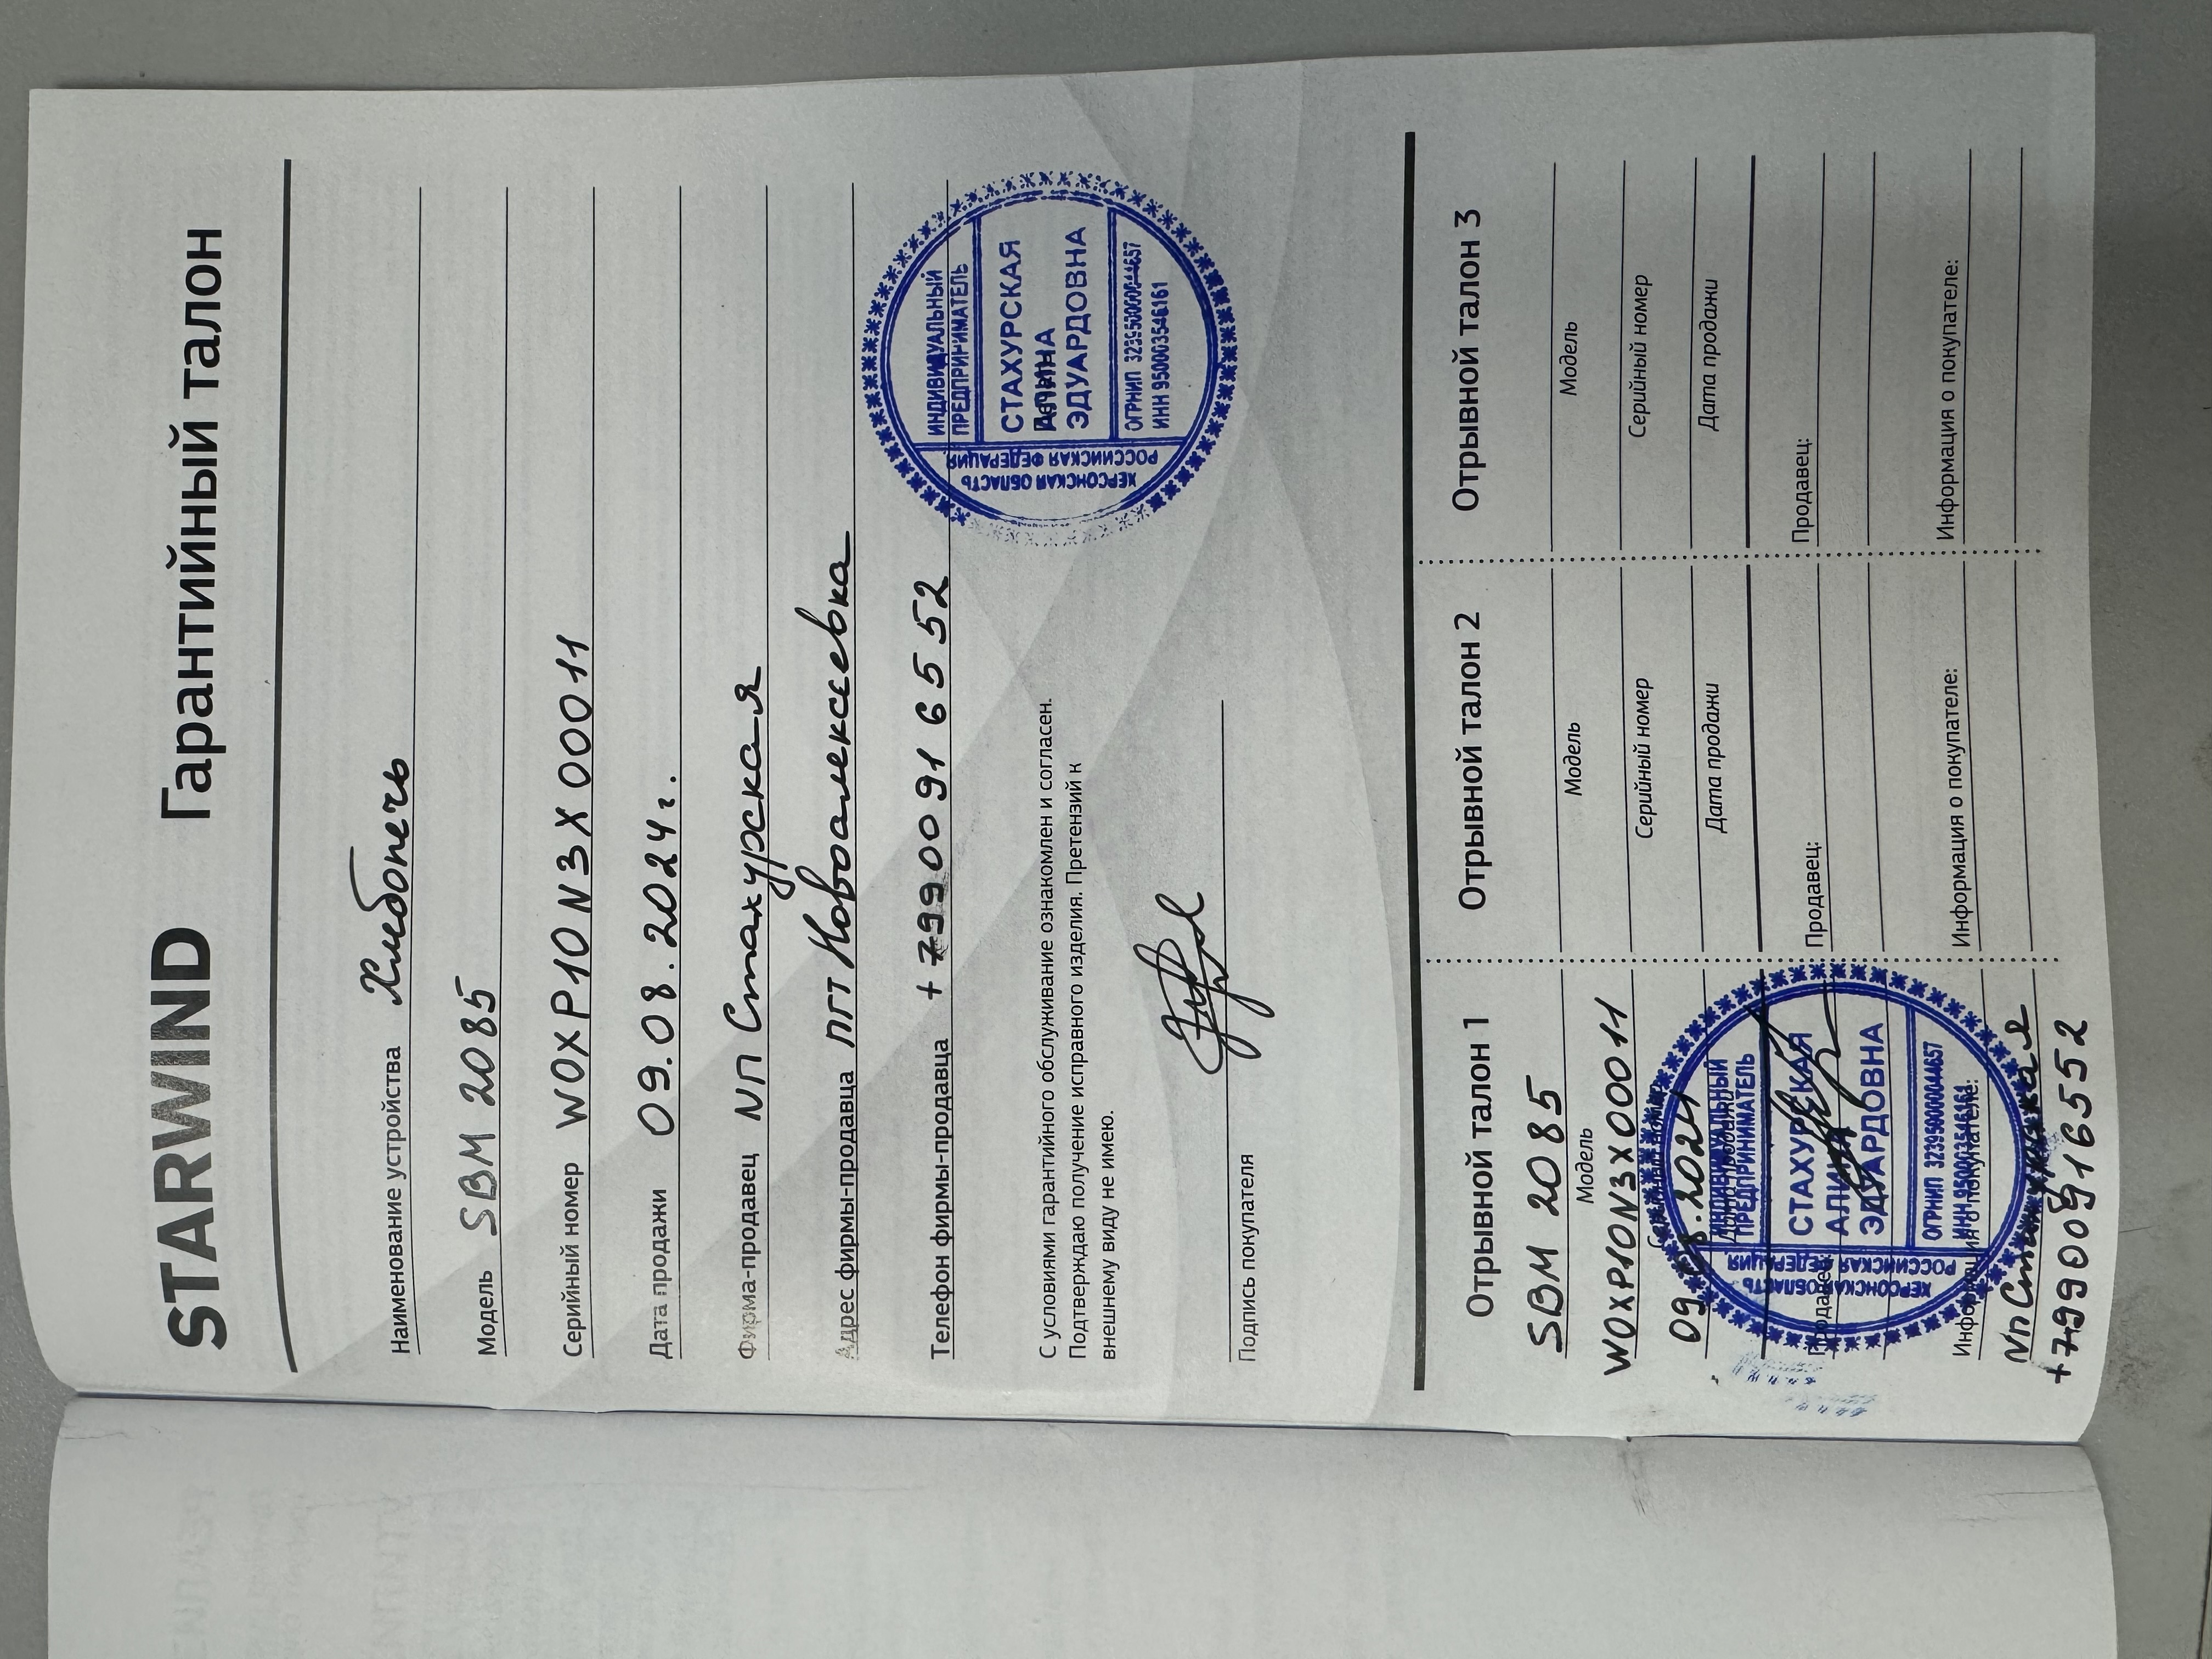 STARWIND Гарантийный талон
Наименование устройства Хлебопечь
Модель SBM 2085
Серийный номер W0XP10N3X00011
Дата продажи 09.08.2024г.
Фирма-продавец ИП Стахурская
Адрес фирмы-продавца пгт Новоалексеевка
Телефон фирмы-продавца +79900916552
ИНДИВИДУАЛЬНЫЙ
ПРЕДПРИНИМАТЕЛЬ
СТАХУРСКАЯ
АЛИНА
ЭДУАРДОВНА
ОГРНИП 323950000044657
ИНН 950003546161
РОССИЙСКАЯ ФЕДЕРАЦИЯ
ХЕРСОНСКАЯ ОБЛАСТЬ
С условиями гарантийного обслуживание ознакомлен и согласен.
Подтверждаю получение исправного изделия. Претензий к
внешнему виду не имею.
Подпись покупателя
Отрывной талон 1
SBM 2085
Модель
W0XP10N3X00011
Серийный номер
09.08.2024
Дата продажи
Продавец:
ИНДИВИДУАЛЬНЫЙ
ПРЕДПРИНИМАТЕЛЬ
СТАХУРСКАЯ
АЛИНА
ЭДУАРДОВНА
ОГРНИП 323950000044657
ИНН 950003546161
РОССИЙСКАЯ ФЕДЕРАЦИЯ
ХЕРСОНСКАЯ ОБЛАСТЬ
Информация о покупателе:
ИП Стахурская
+79900916552
Отрывной талон 2
Модель
Серийный номер
Дата продажи
Продавец:
Информация о покупателе:
Отрывной талон 3
Модель
Серийный номер
Дата продажи
Продавец:
Информация о покупателе: